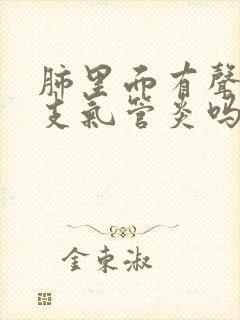 肺里面有聲
支氣管炎吗
金東淑